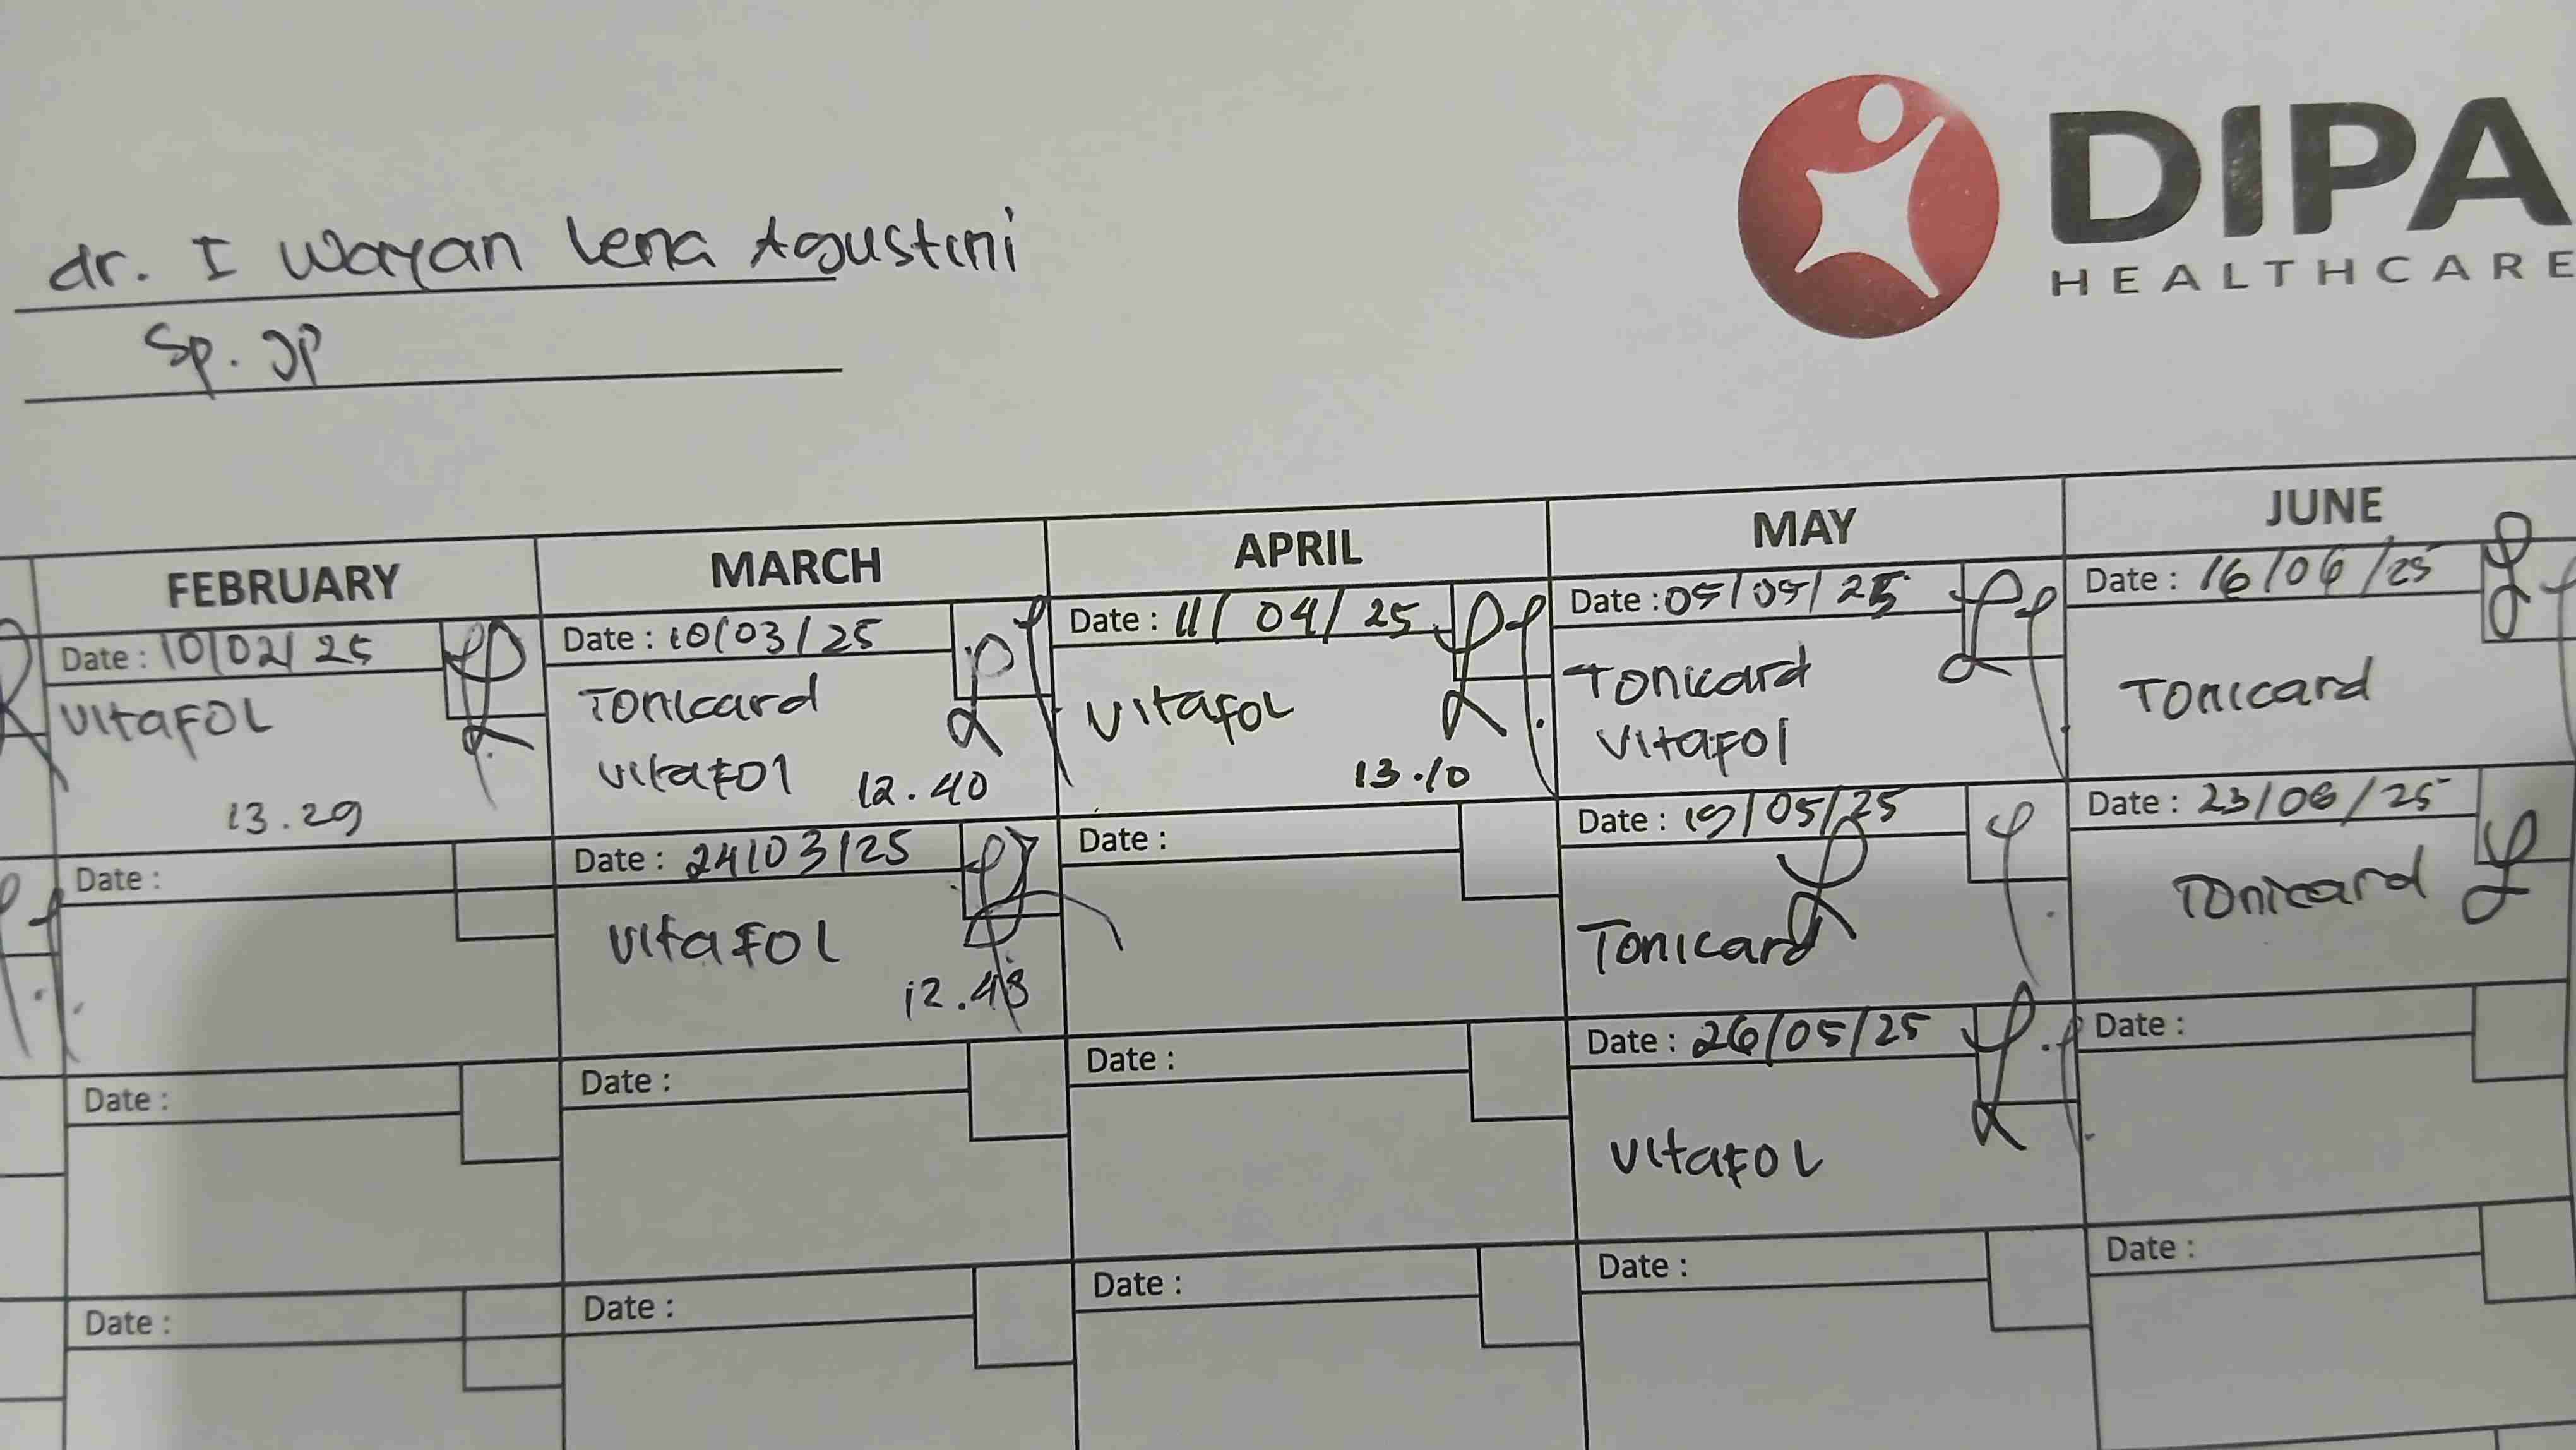 DIPA
HEALTHCARE
dr. I Wayan Lena Agustini
Sp. JP
FEBRUARY
MARCH
APRIL
MAY
JUNE
Date : 10/02/25
Date : 10/03/25
Date : 11/04/25
Date : 05/05/25
Date : 16/06/25
VitaFOL
Tonicard
Vitafol
12.40
VitafoL
Tonicard
Vitafol
Tonicard
13.29
13.10
Date :
Date : 24/03/25
Date :
Date : 19/05/25
Date : 23/06/25
VitaFOL
12.48
Tonicard
Tonicard
Date :
Date :
Date :
Date : 26/05/25
Date :
VitaFOL
Date :
Date :
Date :
Date :
Date :